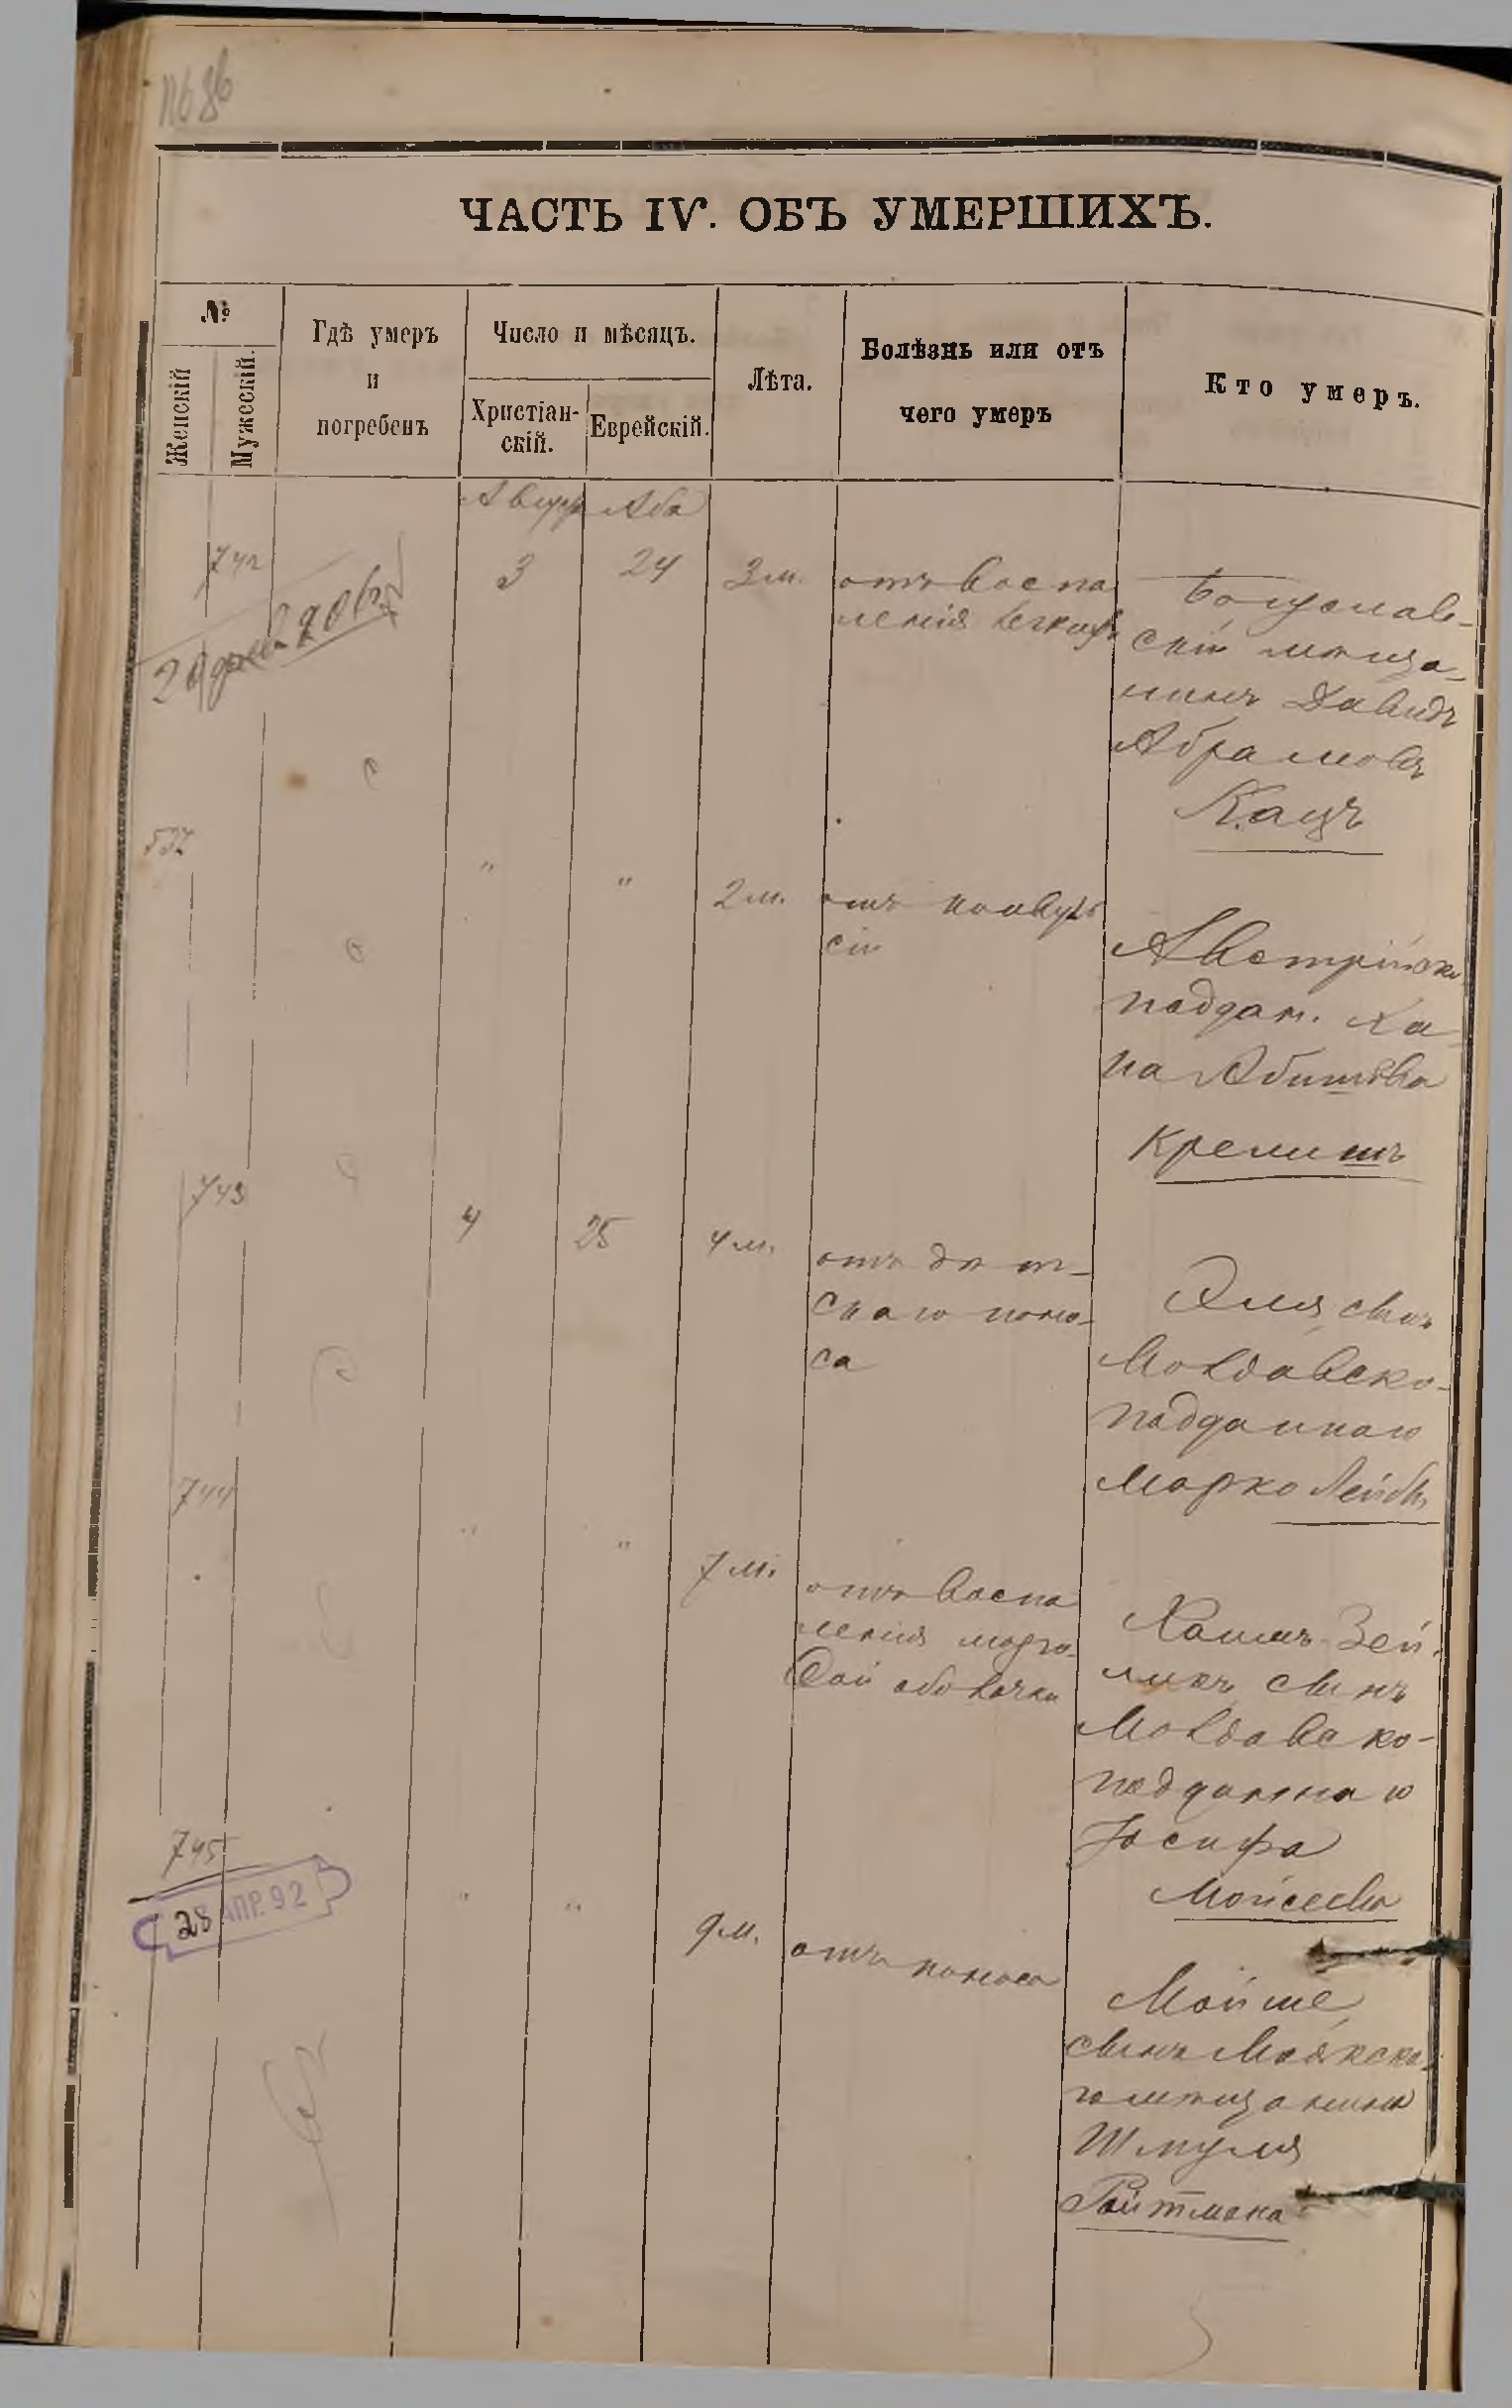 ЧАСТЬ IV. ОБЪ УМЕРШИХЪ.
№
Женскій
Мужескій.
Гдѣ умеръ
и
погребенъ
Число и мѣсяцъ.
Христіан-
скій.
Еврейскій.
Лѣта.
Болѣзнь или отъ
чего умеръ
Кто умеръ.
Ава
742
3
24
3 м.
отъ воспа
ленія легкихъ
Богуслав-
скій мѣща-
нинъ Давидъ
Абрамовъ
Кацъ
537
"
"
2 м.
отъ конвуль
сіи
Австрійско
поддан. Ха
на
743
4
25
4 м.
отъ дѣт-
скаго поно-
са
Эля, сынъ
Молдавско-
подданнаго
Марко Лейбы
744
"
"
7 м.
отъ воспа
ленія мозго-
вой оболочки
Хаимъ-Зей-
ликъ, сынъ
Молдавско-
подданнаго
Іосифа
Мойсеева
745
28 АПР. 92
"
"
9 м.
отъ поноса
Мойше,
сынъ Маякска-
го мѣщанина
Шмуля
Ройтмана